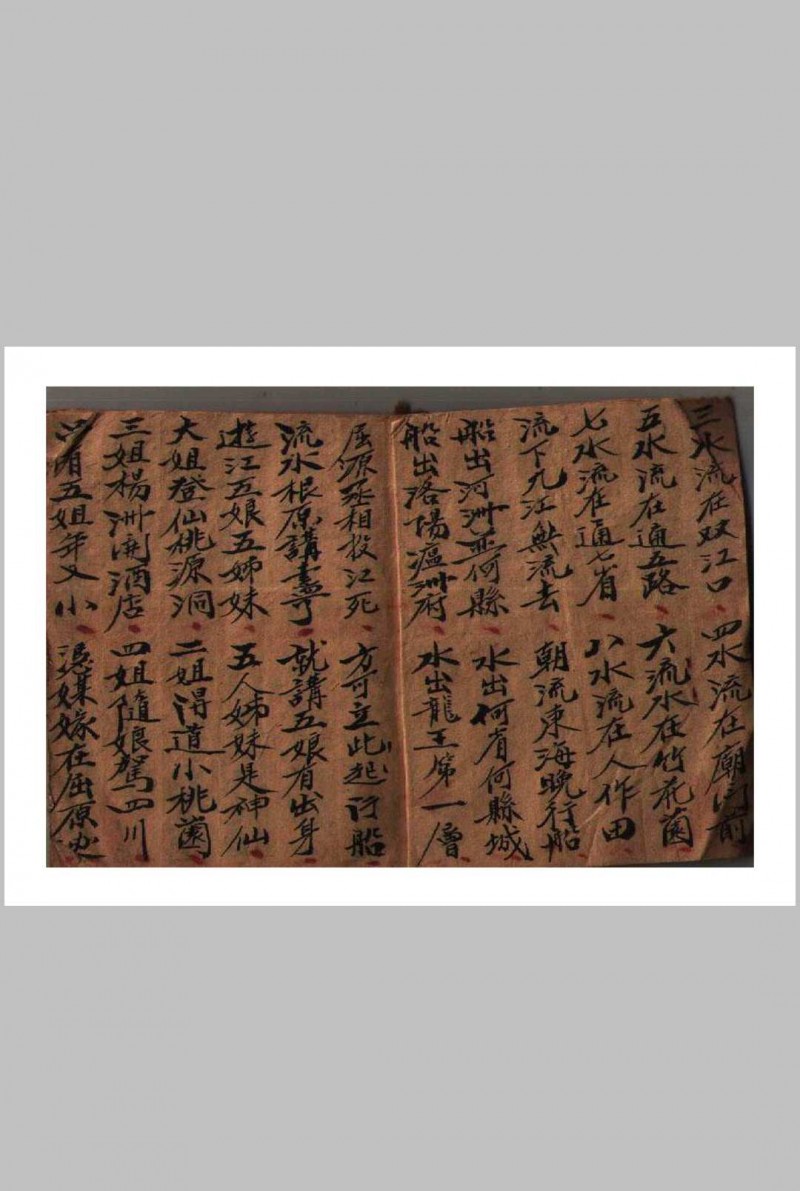 三水流在双江口 四水流在廟門前
五水流在通五路 六流水在竹花園
七水流在通七省 八水流在人作田
流下九江無流去 朝流東海晚行船
船出河洲並何縣 水出何省何縣城
船出洛場瘟洲府 水出龍王第一層
屈源丞相投江死 方可立此起行船
流水根原講盡了 就講五娘有出身
遊江五娘五姊妹 五人姊妹是神仙
大姐登仙桃源洞 二姐得道小桃園
三姐楊洲開酒店 四姐隨娘駕四川
只有五姐年又小 憑媒嫁在屈原